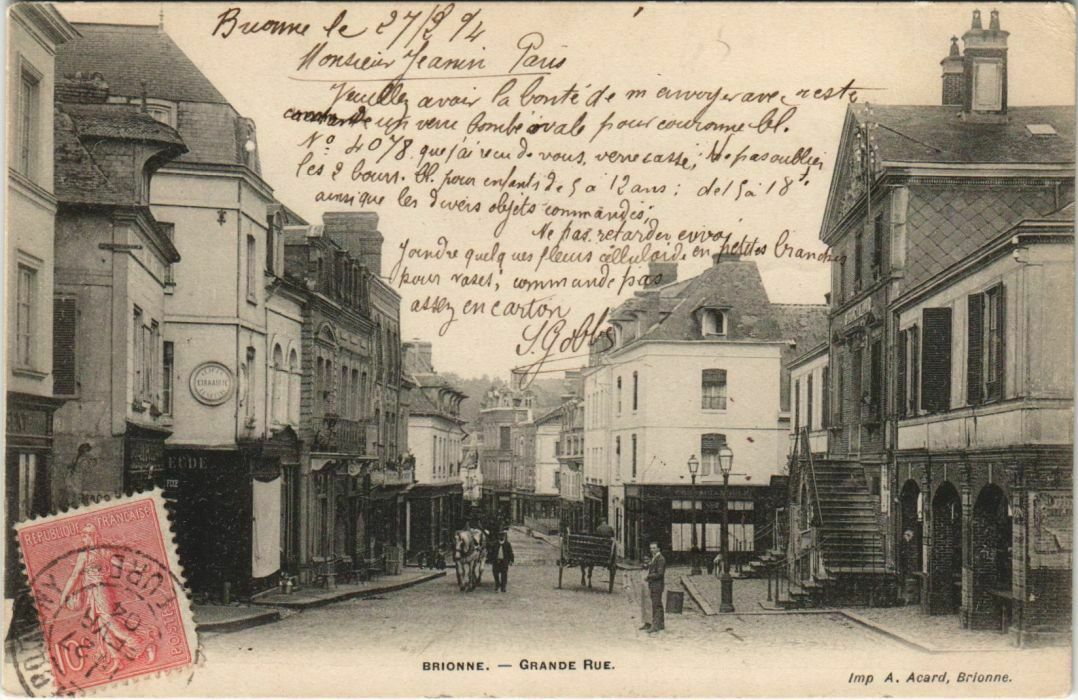 Brionne le 27/2 04
Monsieur Jeanin Paris
Veuillez avoir la bonté de m'envoyer avec reste
un verre bombé ovale pour couronne bl.
No 4078, que j'ai reçu de vous, verre cassé; Ne pas oublier
les 2 bour. bl. pour enfants de 5 à 12 ans: de 15 à 18f.
ainsi que les divers objets commandés.
Ne pas retarder envoi
Joindre quelques fleurs celluloïde en petites branches
pour vases; commande pas
assez en carton
REPUBLIQUE FRANÇAISE
10
POSTES
EURE
04
BRIONNE. — GRANDE RUE.
Imp A. Acard, Brionne.